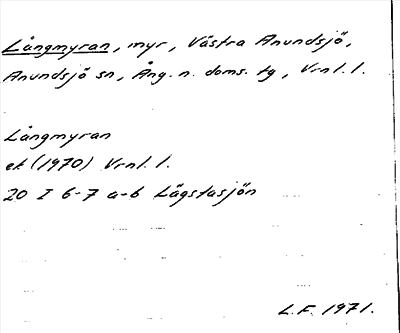 Långmyran, myr, Västra Anundsjö,
Anundsjö sn, Ång. n. doms. tg, Vrnl. l.
Långmyran
ek (1970) Vrnl. l.
20 I 6-7 a-b Lägstasjön
L.F. 1971.